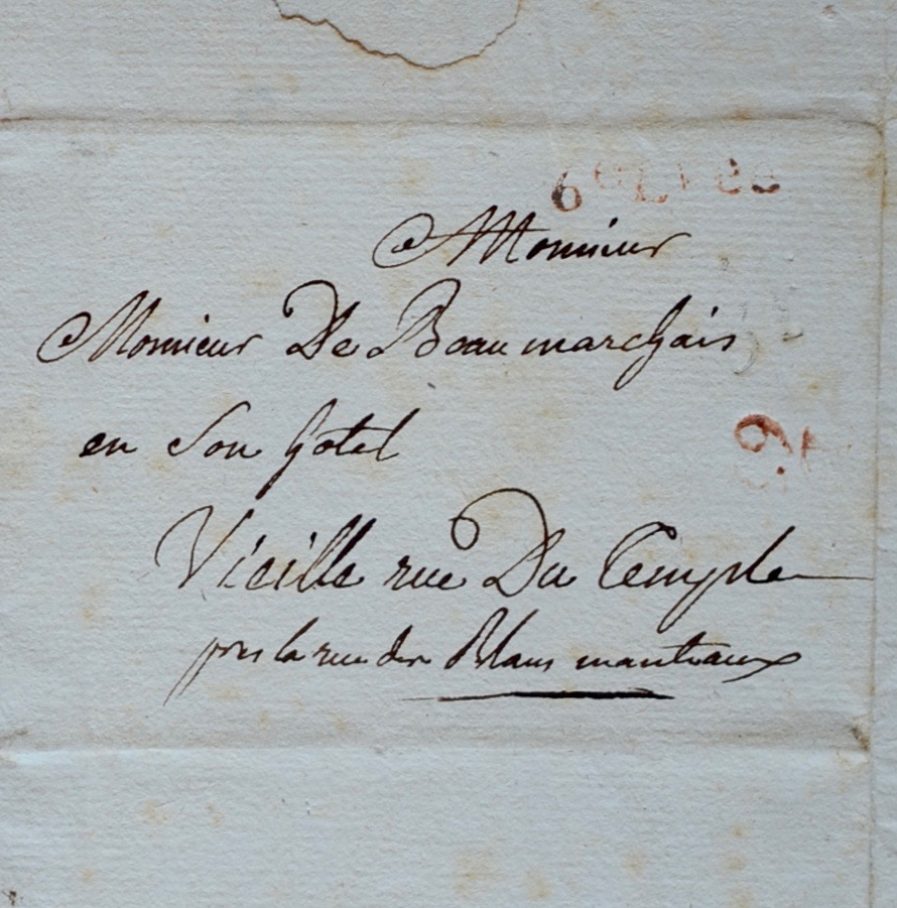 a Monsieur
Monsieur De Beaumarchais
en Son hotel
Vieille rue Du Temple
pres la rue des Blans manteaux